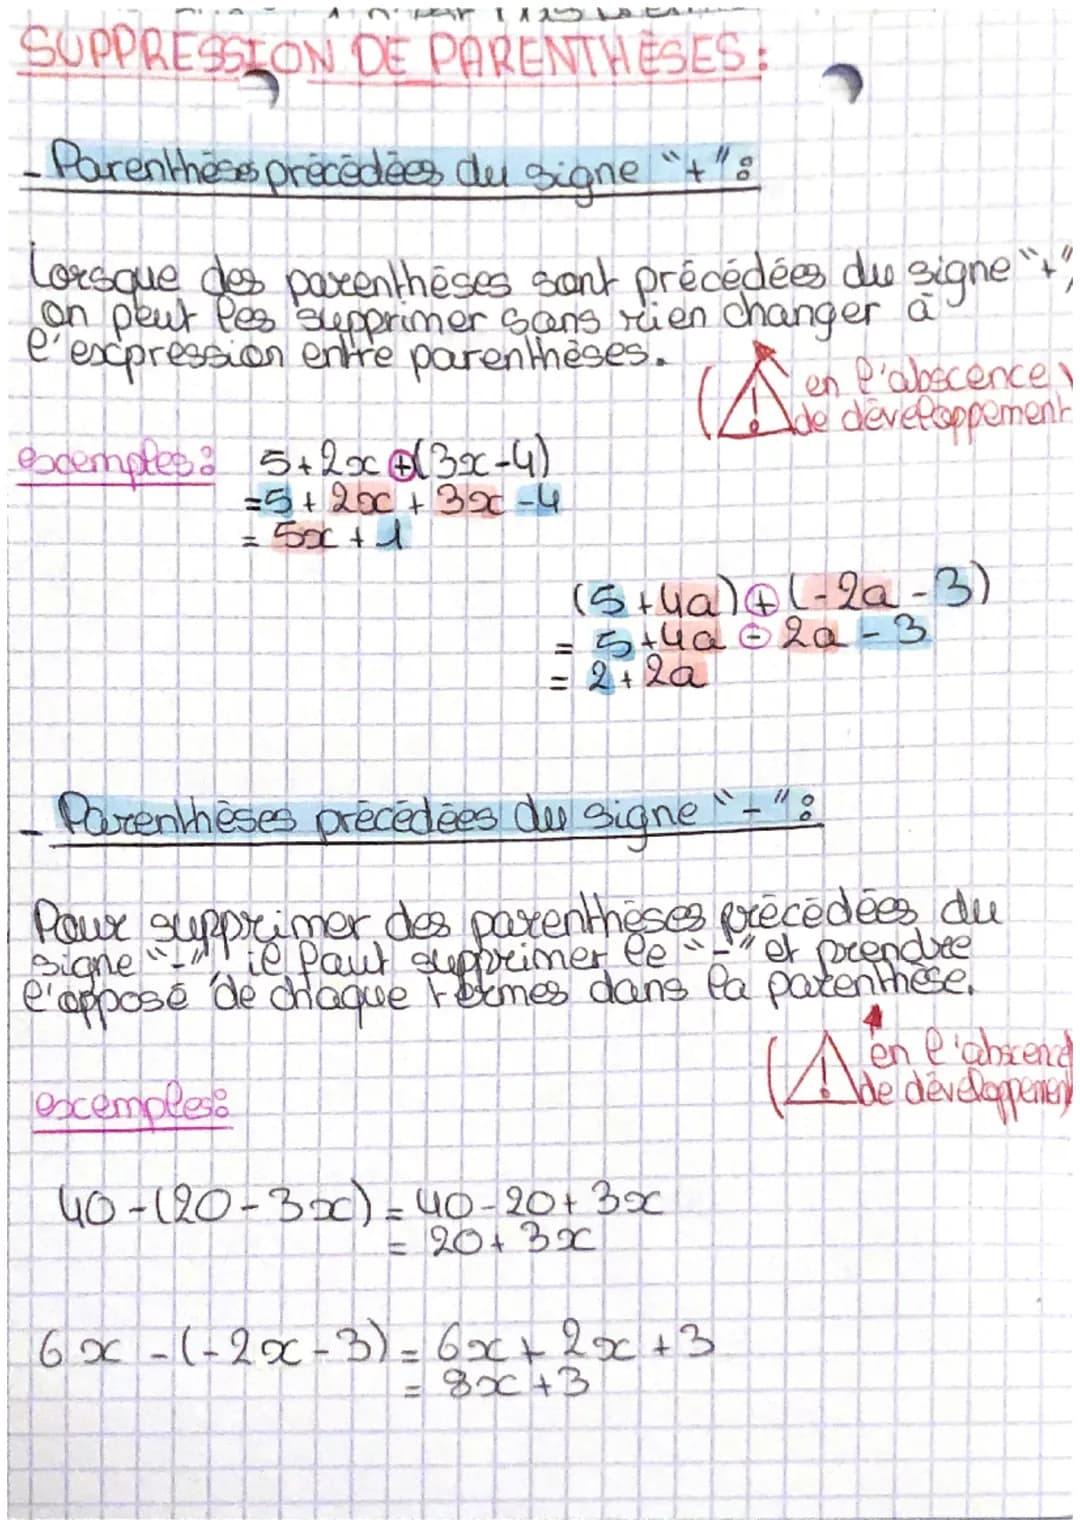 SUPPRESSION DE PARENTHÈSES :
- Parenthèses précédées du signe "+" :
Lorsque des parenthèses sont précédées du signe "+",
on peut les supprimer sans rien changer à
l'expression entre parenthèses.
(⚠ en l'abscence)
de développement
exemples : 5+2x+(3x-4)
=5+2x+3x-4
=5x+1
(5+4a)+(-2a-3)
= 5+4a-2a-3
= 2+2a
- Parenthèses précédées du signe "-" :
Pour supprimer des parenthèses précédées du
signe "-", il faut supprimer le "-" et prendre
l'opposé de chaque termes dans la parenthèse.
(⚠ en l'abscence
de développement
exemples :
40-(20-3x)=40-20+3x
= 20+3x
6x-(-2x-3)=6x+2x+3
= 8x+3